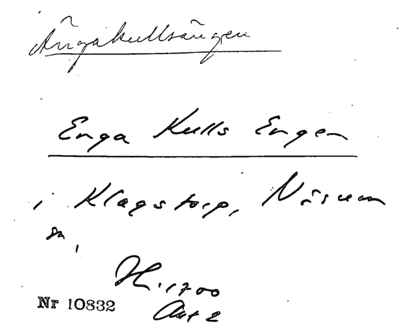 Ängakullsängen
Enga Kulls Engen
i Klagstorp, Näsum
sn,
H. 1700
Akt 2
Nr 10832